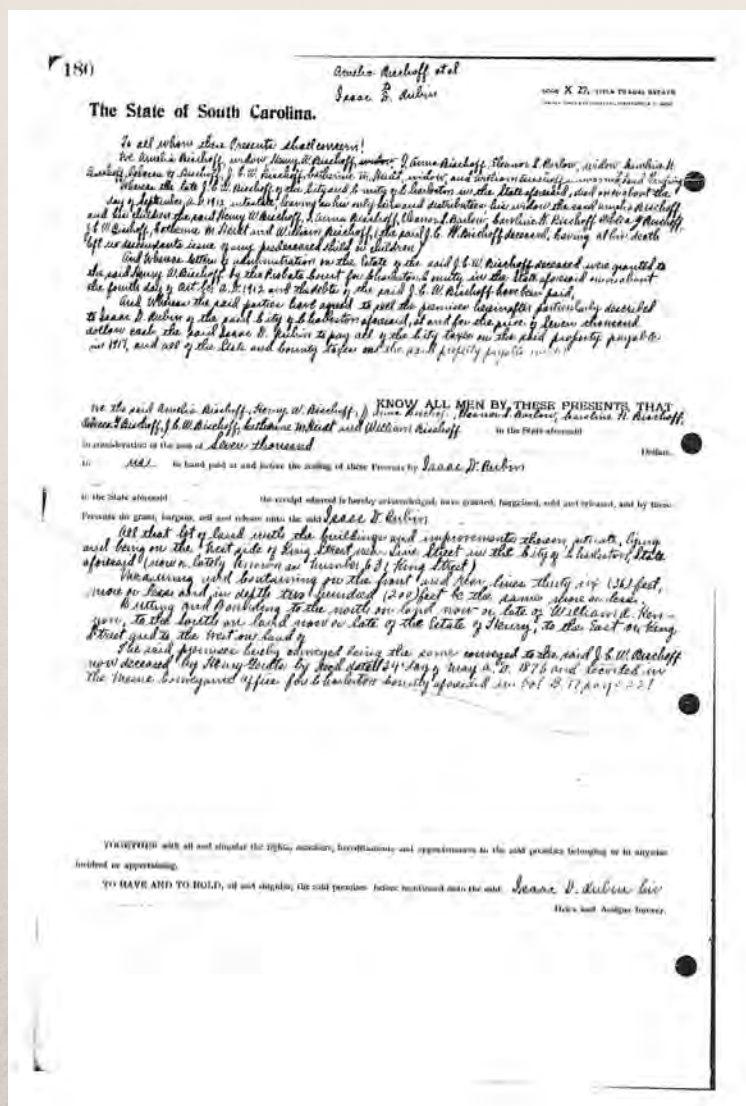 180
Amelia Bischoff et al
to
Isaac D. Rubin
BOOK X 27, TITLE TO REAL ESTATE
The State of South Carolina.
To all whom these Presents shall concern!
We Amelia Bischoff, widow, Henry W. Bischoff, J. Anna Bischoff, Eleanor S. Barlow, widow, Caroline H.
Bischoff, Rebecca G. Bischoff, J. C. W. Bischoff, Catherine M. widow, and William Bischoff send Greeting
Whereas the late J. C. W. Bischoff of the City and County of Charleston in the State aforesaid, died on or about the
day of September A.D. 1912 intestate, leaving as his only heirs and distributees his widow the said Amelia Bischoff
and his children the said Henry W. Bischoff, J. Anna Bischoff, Eleanor S. Barlow, Caroline H. Bischoff, Rebecca G. Bischoff,
J. C. W. Bischoff, Catherine M. and William Bischoff, the said J. C. W. Bischoff deceased, having at his death
left no descendants issue of any predeceased child or children
And Whereas letters of administration on the Estate of the said J. C. W. Bischoff deceased were granted to
the said Henry W. Bischoff by the Probate Court for Charleston County in the State aforesaid on or about
the fourth day of October A.D. 1912 and the debts of the said J. C. W. Bischoff have been paid,
And Whereas the said parties have agreed to sell the premises hereinafter particularly described
to Isaac D. Rubin of the said City of Charleston aforesaid, at and for the price of Seven thousand
dollars cash the said Isaac D. Rubin to pay all of the City taxes on the said property payable
in 1917, and all of the State and County taxes on the said property payable in
KNOW ALL MEN BY THESE PRESENTS, THAT
We the said Amelia Bischoff, Henry W. Bischoff, J. Anna Bischoff, Eleanor S. Barlow, Caroline H. Bischoff,
Rebecca G. Bischoff, J. C. W. Bischoff, Catherine M. and William Bischoff in the State aforesaid
in consideration of the sum of Seven thousand
Dollars,
to us in hand paid at and before the sealing of these Presents by Isaac D. Rubin
in the State aforesaid the receipt whereof is hereby acknowledged, have granted, bargained, sold and released, and by these
Presents do grant, bargain, sell and release unto the said Isaac D. Rubin
All that lot of land with the buildings and improvements thereon, situate, lying
and being on the West side of King Street near Line Street in the City of Charleston, State
aforesaid (now or lately known as number 631 King Street)
Measuring and Containing on the front and rear lines thirty six (36) feet,
more or less and in depth two hundred (200) feet be the same more or less.
Butting and Bounding to the north on land now or late of William A. Ken-
yon, to the South on land now or late of the Estate of Henry, to the East on King
Street and to the West on land of
The said premises hereby conveyed being the same conveyed to the said J. C. W. Bischoff
now deceased by Henry by deed dated 24 day of May A. D. 1876 and recorded in
the Mesne Conveyance Office for Charleston County aforesaid in Vol B 17 page 221
TOGETHER with all and singular the rights, members, hereditaments and appurtenances to the said premises belonging or in anywise
incident or appertaining.
TO HAVE AND TO HOLD, all and singular, the said premises before mentioned unto the said Isaac D. Rubin his
Heirs and Assigns forever.